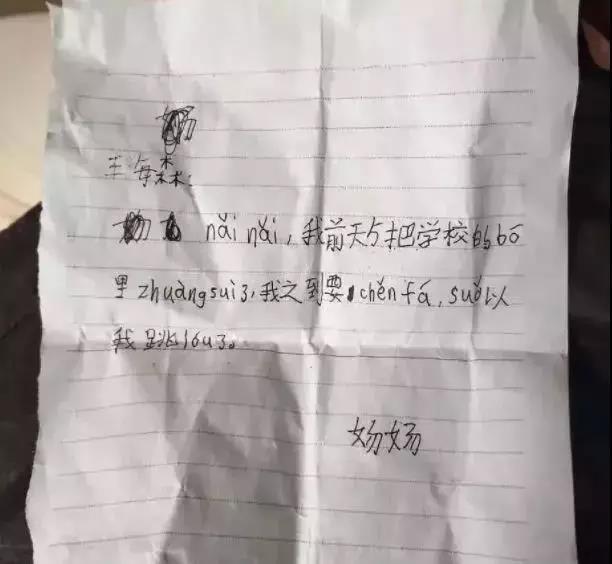 王每森:
nǎi nǎi,我前天把学校的bō
里zhuàng suì 3,我之到要chěn fá,suǒ以
我跳lóu 3。